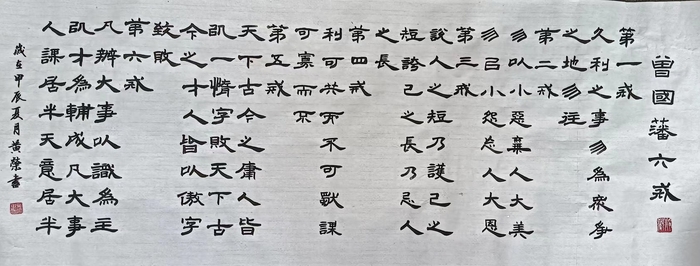 曾國藩六戒
第一戒
久利之事勿為衆争
之地勿往
第二戒
勿以小惡棄人大美
勿㠯小怨忘人大恩
第三戒
說人之短乃護己之
短誇己之長乃忌人
之長
第四戒
利可共而不可獨謀
可寡而不
第五戒
天下古今之庸人皆
凡一惰字敗天下古
今之才人皆以傲字
致敗
第六戒
凡辦大事以識為主
凡才為輔成凡大事
人謀居半天意居半
歲在甲辰夏月黃榮書